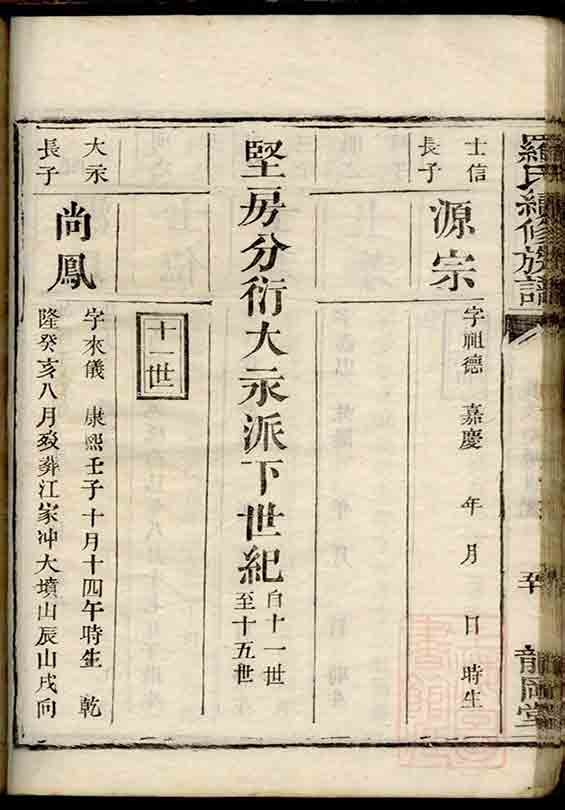 羅氏續修族譜
龍岡堂
士信
長子
源宗
字祖德 嘉慶 年 月 日 時生
堅房分衍大永派下世紀
自十一世
至十五世
十一世
大永
長子
尚鳳
字來儀 康熙壬子十月十四午時生 乾
隆癸亥八月歿葬江家冲大墳山辰山戌向